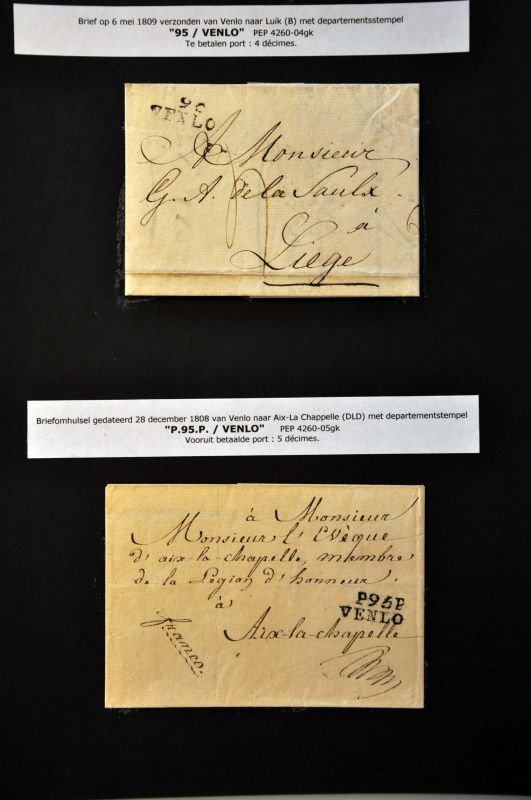 Brief op 6 mei 1809 verzonden van Venlo naar Luik (B) met departementsstempel
"95 / VENLO" PEP 4260-04gk
Te betalen port : 4 décimes.
VENLO
A Monsieur
G. A. de la Saulx
à
Liege
Briefomhulsel gedateerd 28 december 1808 van Venlo naar Aix-La Chappelle (DLD) met departementstempel
"P.95.P. / VENLO" PEP 4260-05gk
Vooruit betaalde port : 5 décimes.
à Monsieur
Monsieur l'Evèque
d'aix-la-chapelle, membre
de la Légion d'honneur.
à
P95P
VENLO
Aix-la-chapelle
franco.